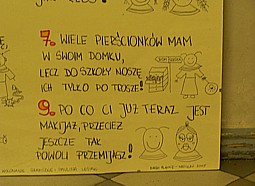 7. WIELE PIERŚCIONKÓW MAM
W SWOIM DOMKU,
LECZ DO SZKOŁY NOSZĘ
ICH TYLKO PO TROSZE!
9. PO CO CI JUŻ TERAZ JEST
MAKIJAŻ, PRZECIEŻ
JESZCZE TAK
POWOLI PRZEMIJASZ!